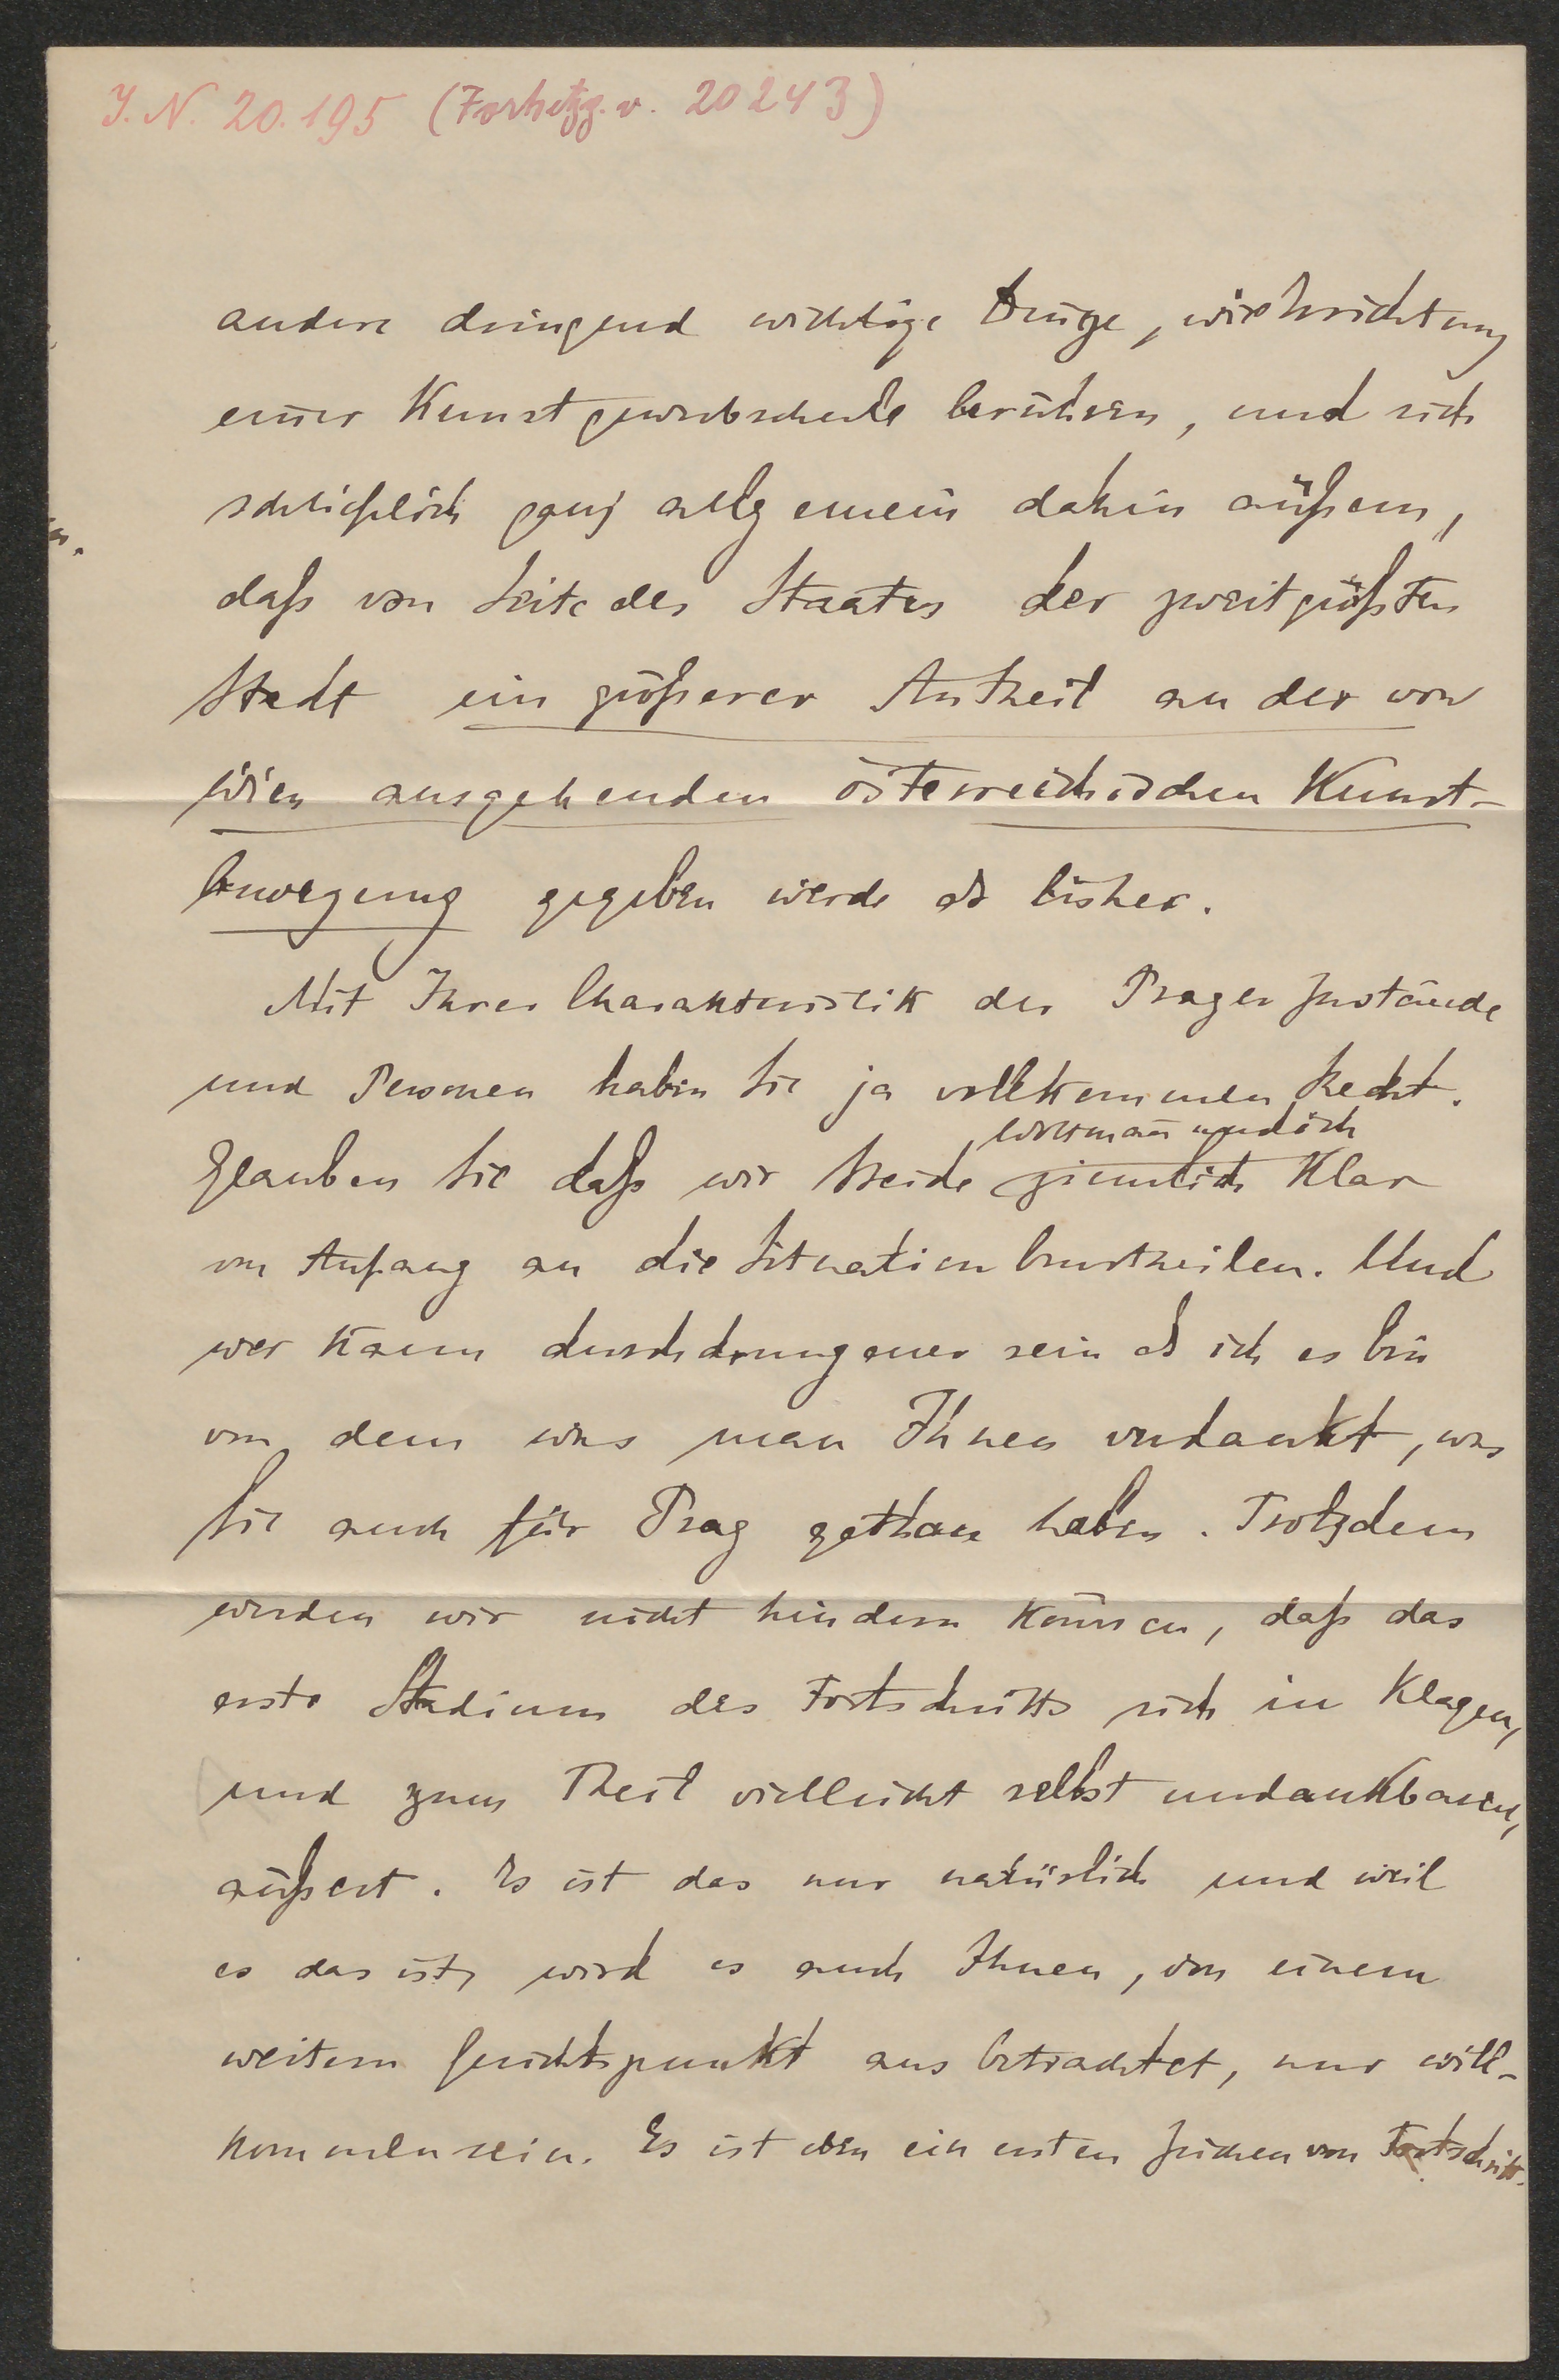 J. N. 20.195 (Fortsetzg. v. 20243)
andere dringend wichtige Dinge, wie Errichtung
einer Kunstgewerbschule berühren, und sich
schließlich ganz allgemein dahin äußern,
daß von Seite des Staates der zweitgrößten
Stadt ein größerer Antheil an der von
Wien ausgehenden österreichischen Kunst-
bewegung gegeben werde als bisher.
Mit Ihrer Charakteristik der Prager Zustände
und Personen haben Sie ja vollkommen Recht.
Woltmann und ich
Glauben Sie daß wir Beide ziemlich klar
von Anfang an die Situation beurtheilen. Und
wer kann durchdrungener sein als ich es bin
von dem was man Ihnen verdankt, was
Sie auch für Prag gethan haben. Trotzdem
werden wir nicht hindern können, daß das
erste Stadium des Fortschritts sich in Klagen,
und zum Theil vielleicht selbst undankbaren,
äußert. Es ist das nur natürlich und weil
es das ist, wird es auch Ihnen, von einem
weitern Gesichtspunkt aus betrachtet, nur will-
kommen sein. Es ist eben ein erstes Zeichen von Fortschritt.